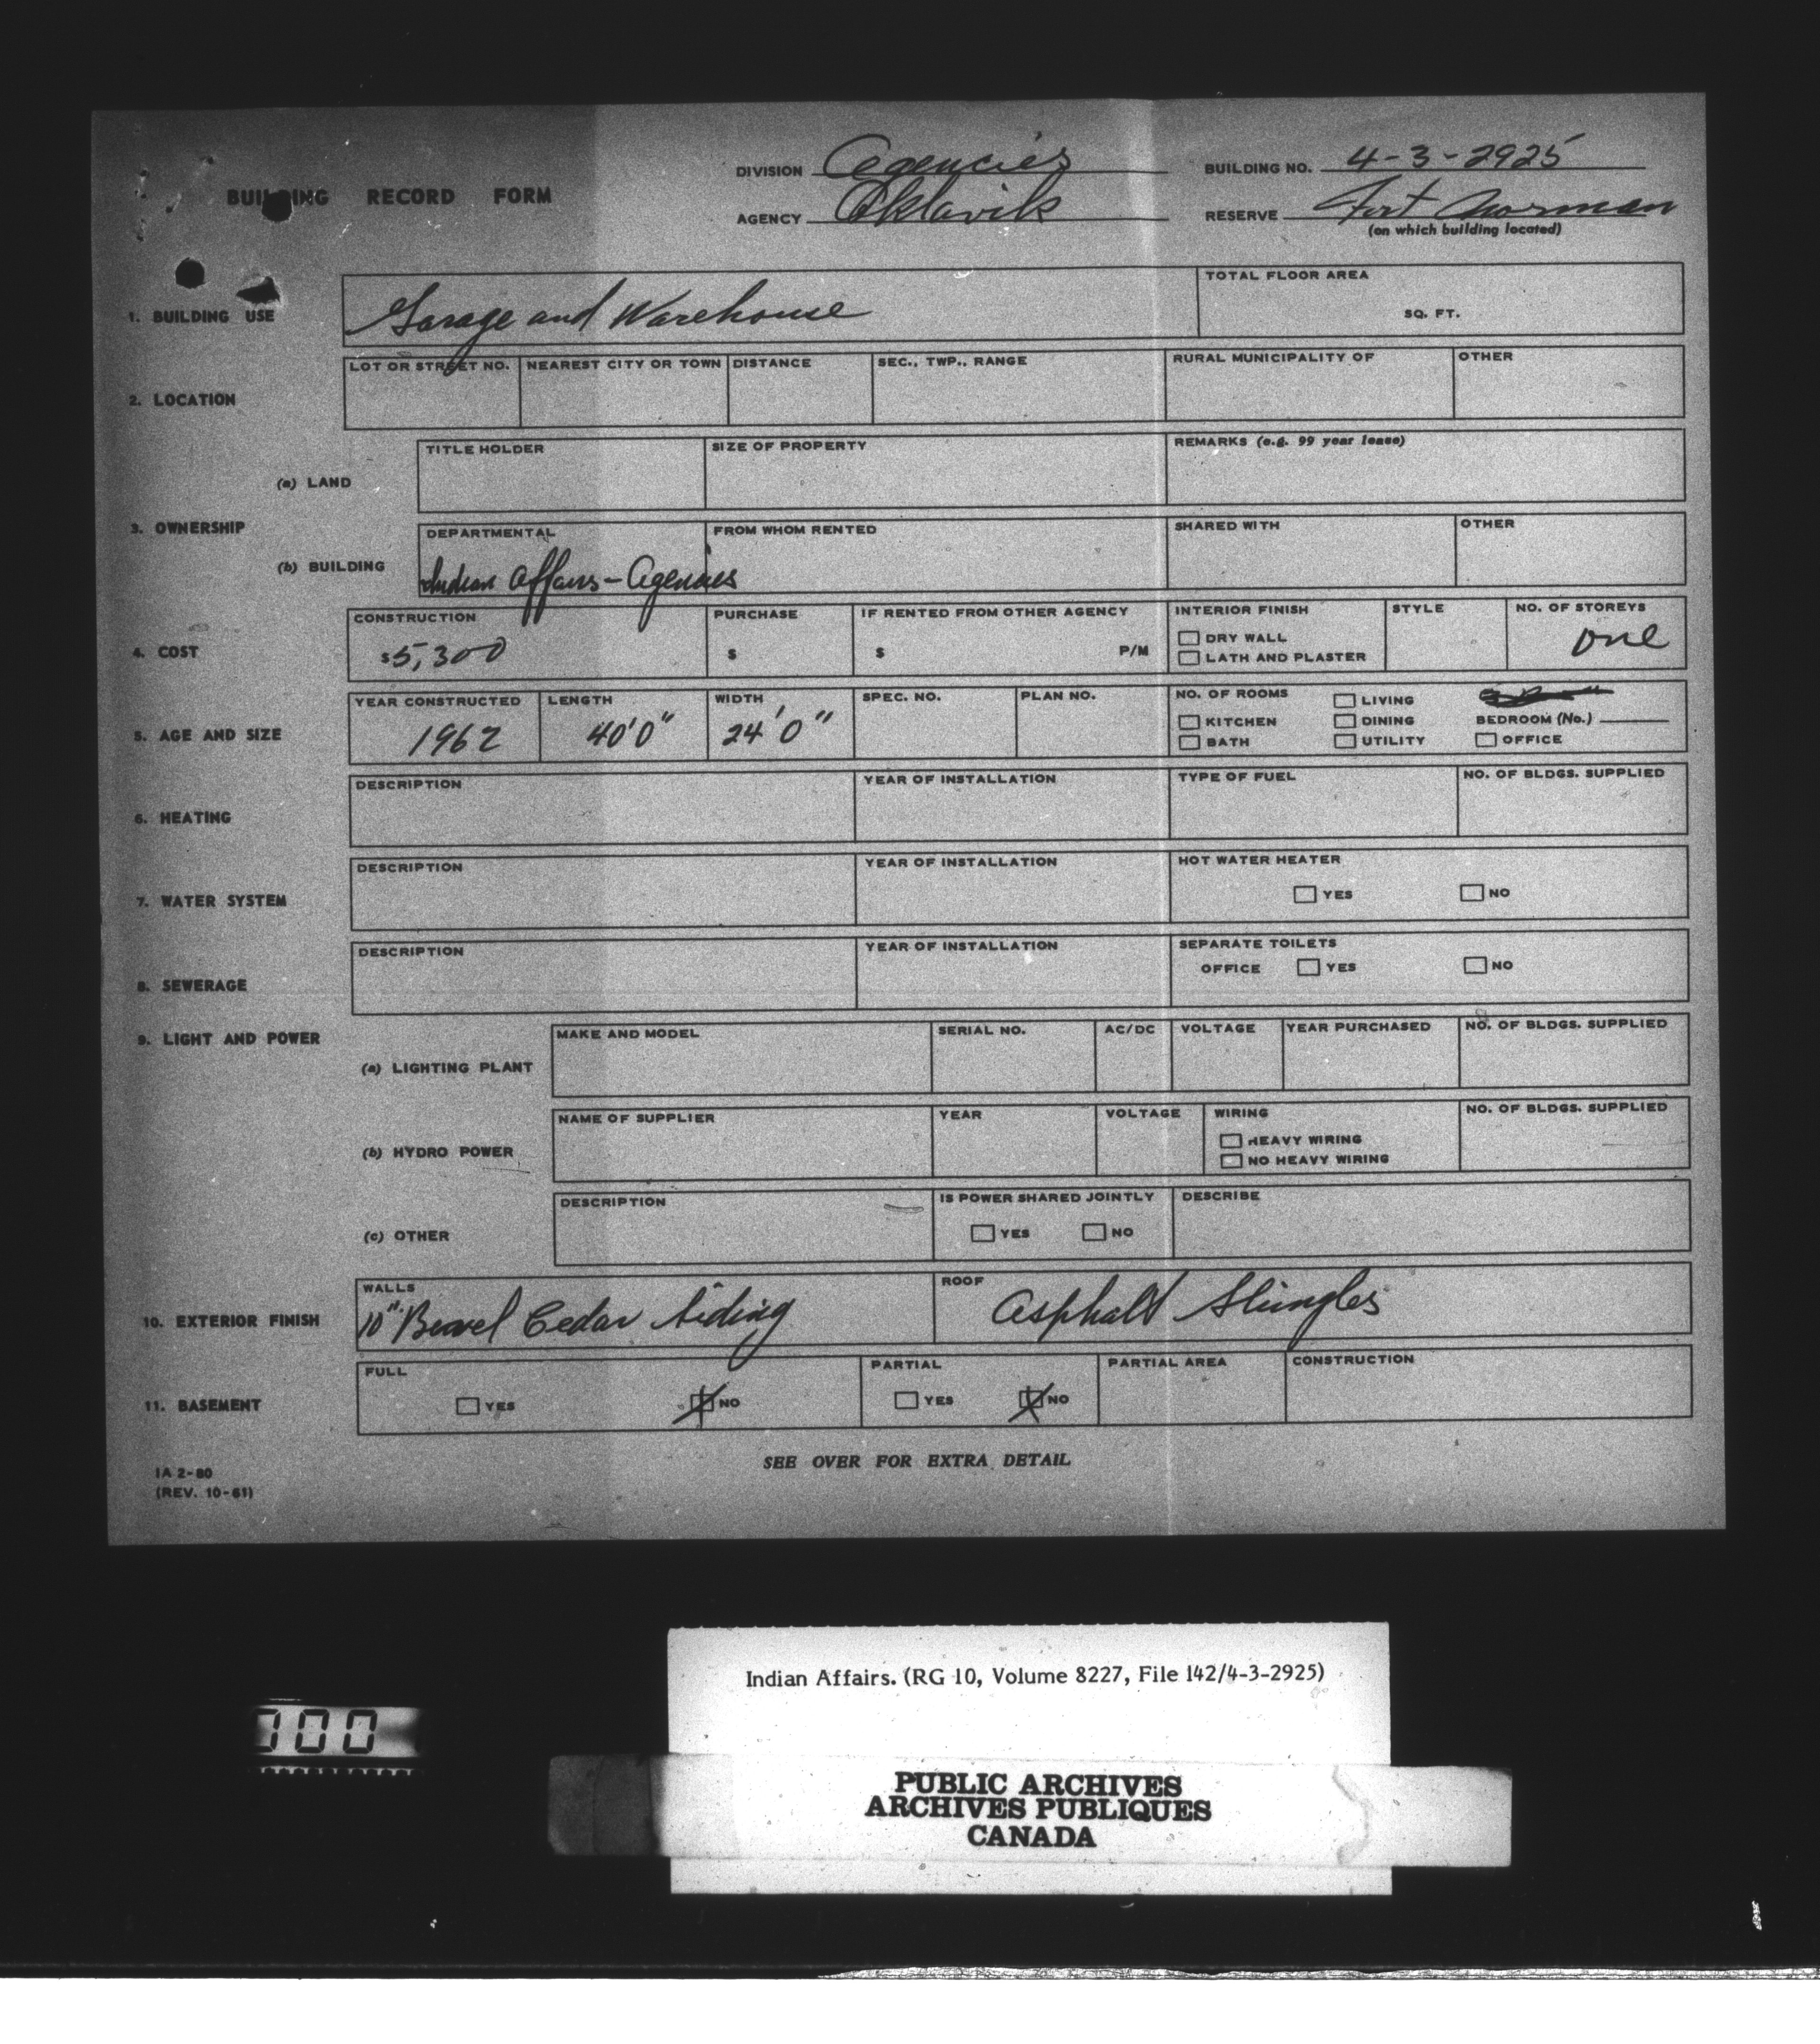 DIVISION Agencies BUILDING NO. 4-3-2925
BUILDING RECORD FORM
AGENCY Aklavik RESERVE Fort Norman
(on which building located)
1. BUILDING USE Garage and Warehouse TOTAL FLOOR AREA SQ. FT.
2. LOCATION LOT OR STREET NO. NEAREST CITY OR TOWN DISTANCE SEC., TWP., RANGE RURAL MUNICIPALITY OF OTHER
(a) LAND TITLE HOLDER SIZE OF PROPERTY REMARKS (e.g. 99 year lease)
3. OWNERSHIP
(b) BUILDING DEPARTMENTAL FROM WHOM RENTED SHARED WITH OTHER
Indian Affairs - Agencies
4. COST CONSTRUCTION PURCHASE IF RENTED FROM OTHER AGENCY INTERIOR FINISH STYLE NO. OF STOREYS
$5,300 $ $ P/M DRY WALL one
LATH AND PLASTER
5. AGE AND SIZE YEAR CONSTRUCTED LENGTH WIDTH SPEC. NO. PLAN NO. NO. OF ROOMS LIVING
1962 40'0" 24'0" KITCHEN DINING BEDROOM (No.)
BATH UTILITY OFFICE
6. HEATING DESCRIPTION YEAR OF INSTALLATION TYPE OF FUEL NO. OF BLDGS. SUPPLIED
7. WATER SYSTEM DESCRIPTION YEAR OF INSTALLATION HOT WATER HEATER
YES NO
8. SEWERAGE DESCRIPTION YEAR OF INSTALLATION SEPARATE TOILETS
OFFICE YES NO
9. LIGHT AND POWER
(a) LIGHTING PLANT MAKE AND MODEL SERIAL NO. AC/DC VOLTAGE YEAR PURCHASED NO. OF BLDGS. SUPPLIED
(b) HYDRO POWER NAME OF SUPPLIER YEAR VOLTAGE WIRING NO. OF BLDGS. SUPPLIED
HEAVY WIRING
NO HEAVY WIRING
(c) OTHER DESCRIPTION IS POWER SHARED JOINTLY DESCRIBE
YES NO
10. EXTERIOR FINISH WALLS ROOF
10" Bevel Cedar Siding Asphalt Shingles
11. BASEMENT FULL PARTIAL PARTIAL AREA CONSTRUCTION
YES NO YES NO
SEE OVER FOR EXTRA DETAIL
IA 2-80
(REV. 10-61)
Indian Affairs. (RG 10, Volume 8227, File 142/4-3-2925)
PUBLIC ARCHIVES
ARCHIVES PUBLIQUES
CANADA